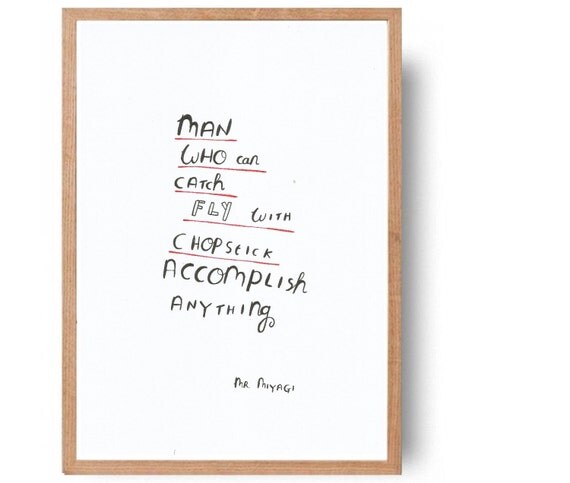 MAN
WHO can
CATCh
FLY WITH
CHOPStICK
ACCOMPLISh
ANYTHINg
MR MIYAGI